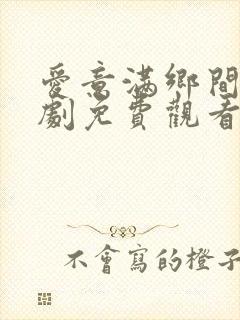 愛意滿鄉間
劇免費觀看
不會寫的橙子